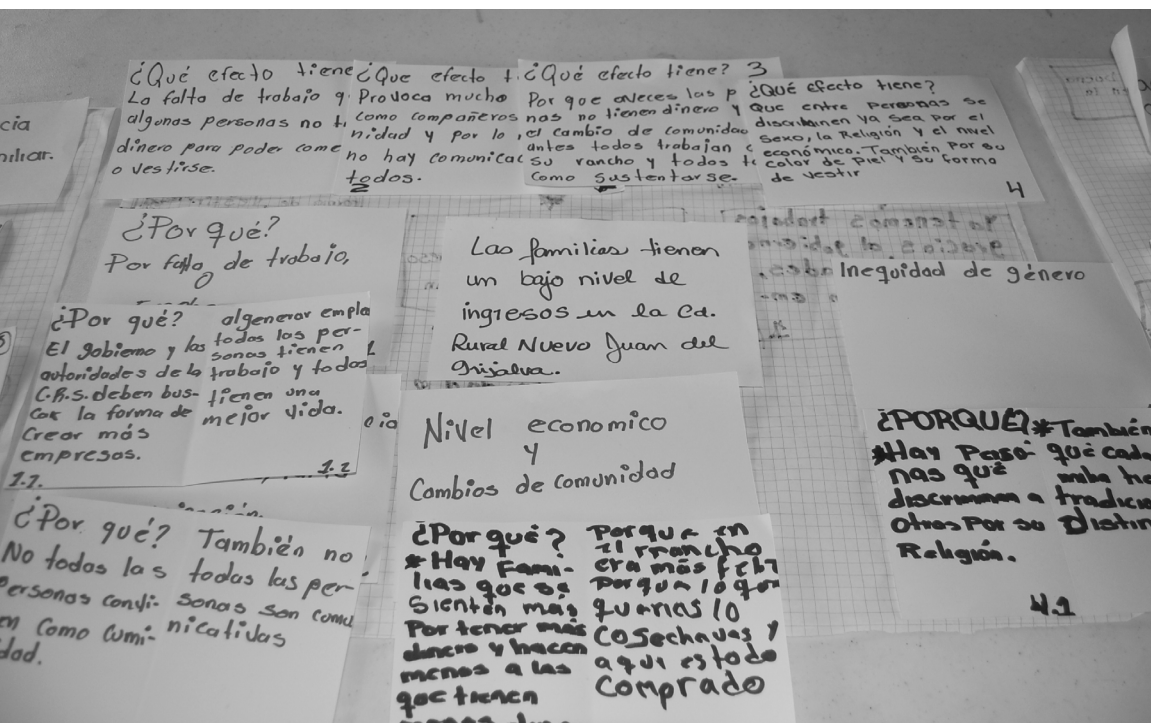 cia
¿Qué efecto tiene
La falta de trabajo q
algunas personas no t
dinero para poder come
o vestirse.
¿Que efecto t
Provoca mucho
como compañeros
nidad y por lo
no hay comunicac
todos.
2
¿Qué efecto tiene? 3
Por que aveces las p
nas no tienen dinero y
el cambio de comunidad
antes todos trabajan
su rancho y todos t
como sustentarse.
¿Qué efecto tiene?
Que entre personas se
discriminen ya sea por el
sexo, la Religión y el nivel
económico. También por su
color de piel y su forma
de vestir
4
¿Por qué?
Por falta de trabajo,
Las familias tienen
un bajo nivel de
ingresos en la Cd.
Rural Nuevo Juan del
Grijalva.
Inequidad de género
¿Por qué?
El gobierno y las
autoridades de la
C.R.S. deben bus-
car la forma de
crear más
empresas.
1.1.
algenerar empla
todas las per-
sonas tienen
trabajo y todos
tienen una
mejor vida.
1.2
Nivel economico
y
Cambios de comunidad
¿PORQUE?
*Hay Perso-
nas que
discriminan a
otros Por su
Religión.
*También
que cada
tradicio
Distin
4.1
¿Por qué?
No todas las
Personas convi-
en como cumi-
dad.
También no
todas las per-
sonas son comu
nicativas
¿Por que?
*Hay Fami-
lias que se
sienten más
Por tener más
dinero y hacen
menos a las
que tienen
Porque en
el rrancho
era más feliz
porque lo que
querias lo
cosechavas y
aqui es todo
comprado